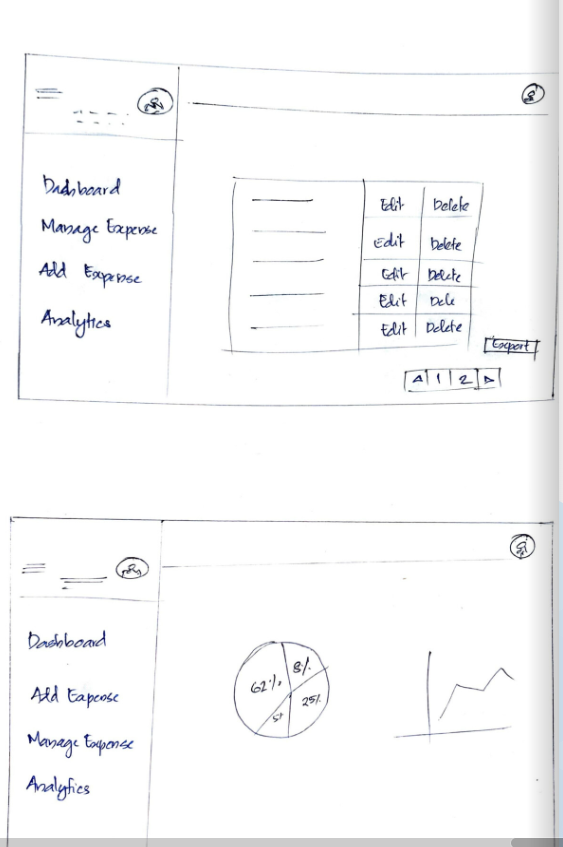 Dashboard
Manage Expense
Add Expense
Analytics
Edit Delete
Edit Delete
Edit Delete
Edit Dele
Edit Delete
Export
1 2
Dashboard
Add Expense
Manage Expense
Analytics
62% 8%
25%
5%